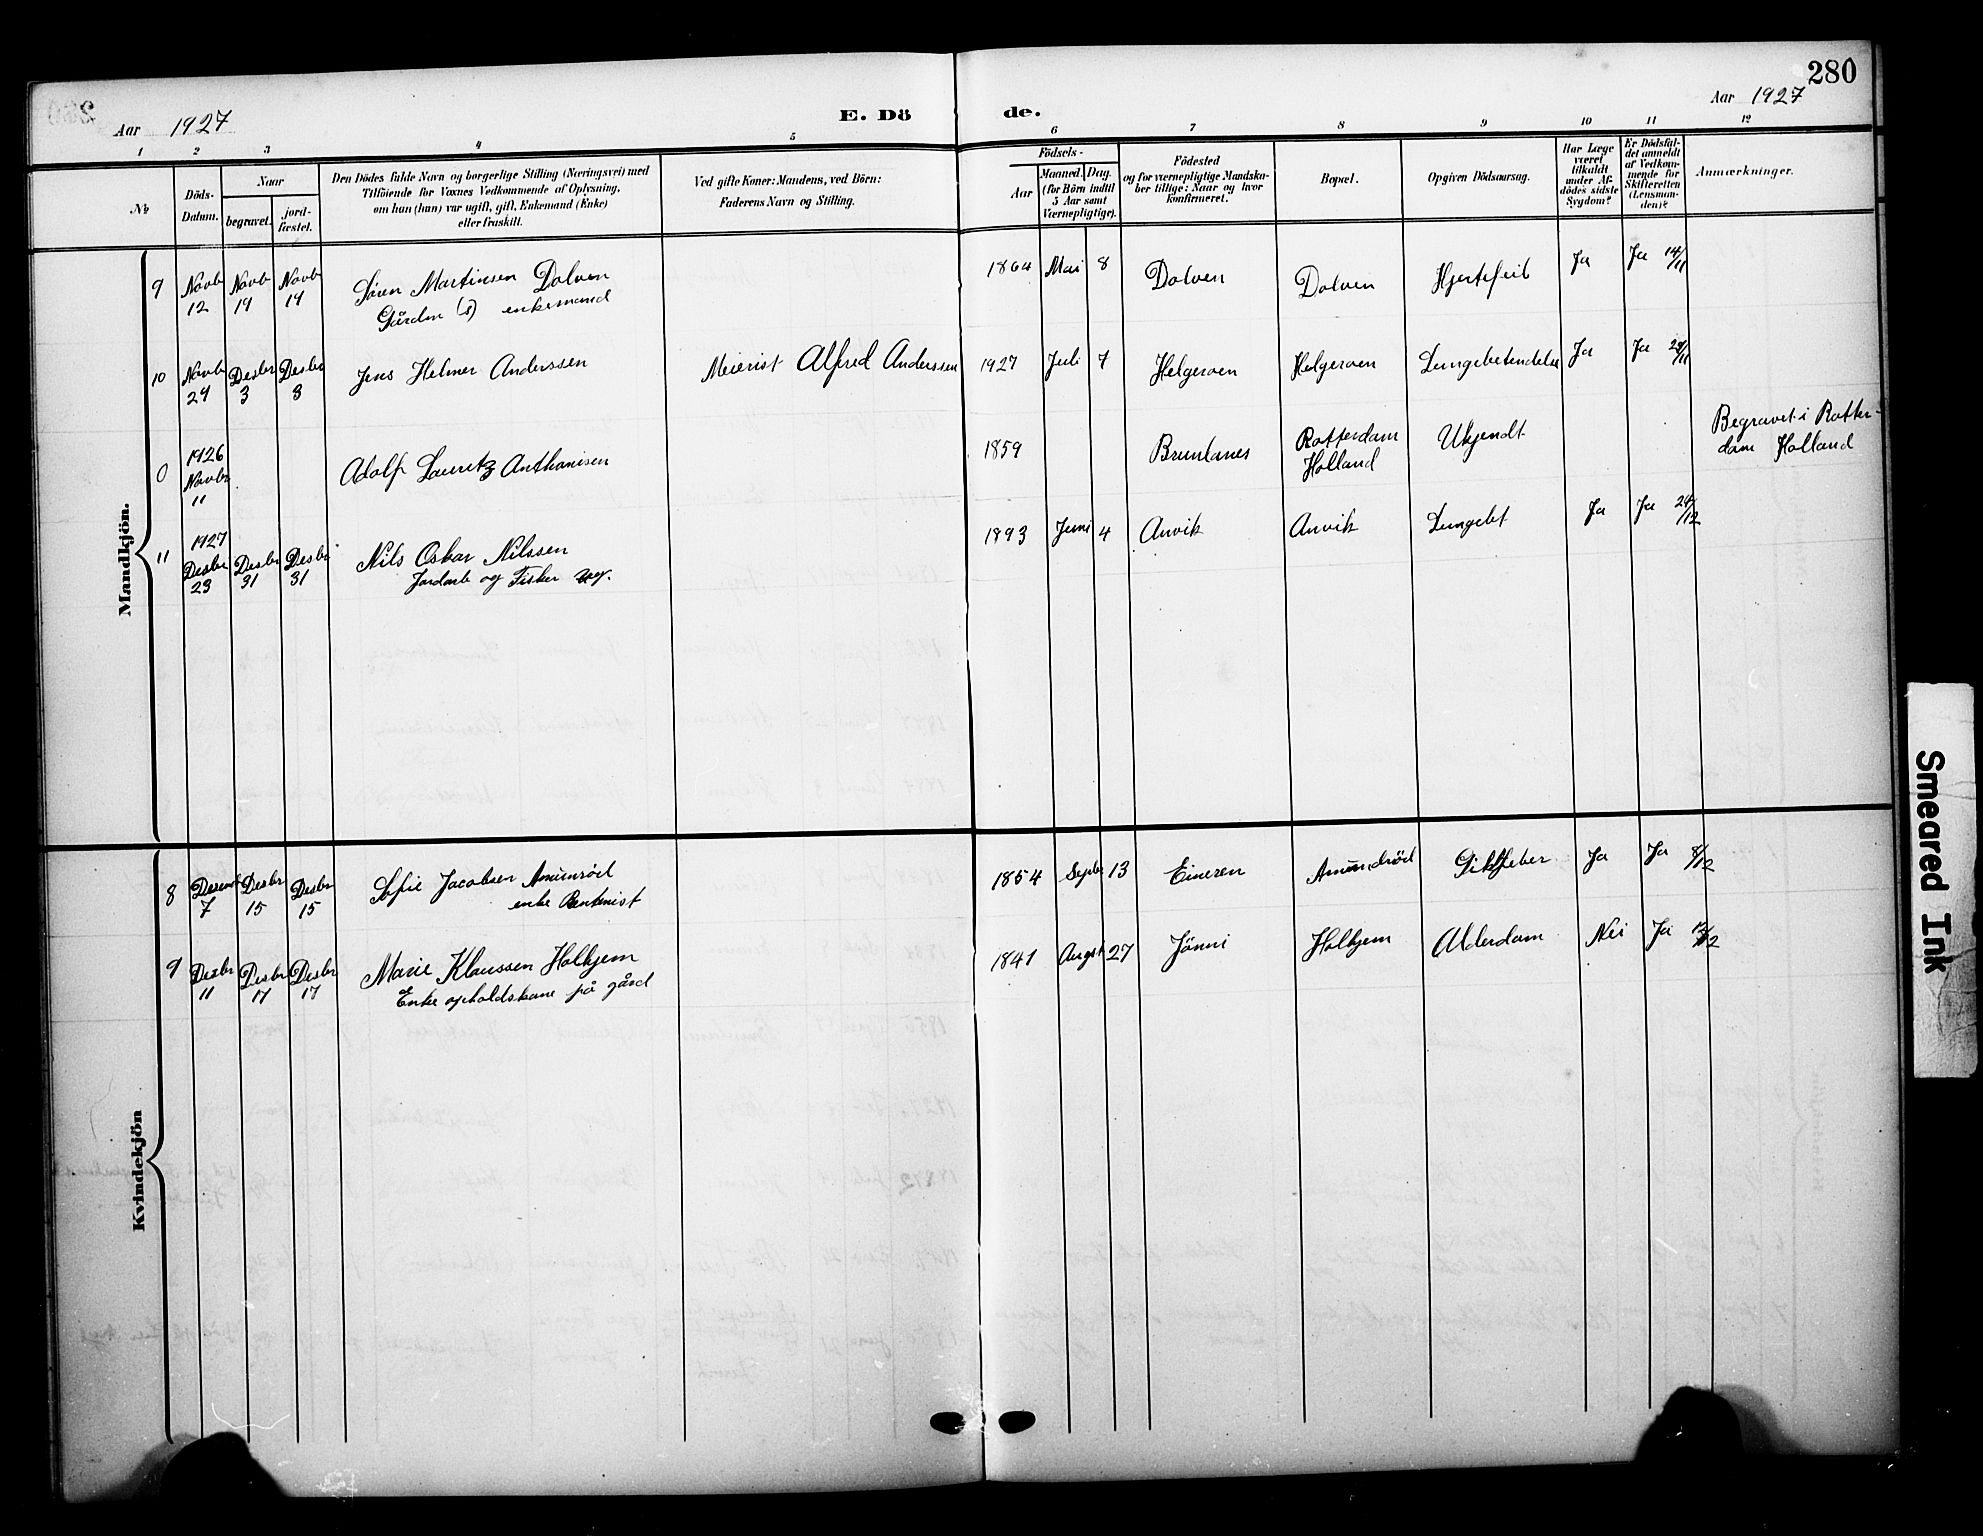 280
Aar 1927
E. Dö
de.
Aar 1927
1 2 3 4 5 6 7 8 9 10 11 12
№
Döds-
Datum.
Naar
begravet.
jord-
fæstet.
Den Dödes fulde Navn og borgerlige Stilling (Næringsvei) med
Tilföiende for Voxnes Vedkommende af Oplysning,
om han (hun) var ugift, gift, Enkemand (Enke)
eller fraskilt.
Ved gifte Koner: Mandens, ved Börn:
Faderens Navn og Stilling.
Födsels-
Aar
Maaned. Dag.
(for Börn indtil
5 Aar samt
Værnepligtige).
Födested
og for værnepligtige Mandska-
ber tillige: Naar og hvor
konfirmeret.
Bopæl.
Opgiven Dödsaarsag.
Har Læge
været
tilkaldt
under Af-
dödes sidste
Sygdom?
Er Dödsfal-
det anmeldt
af Vedkom-
mende for
Skifteretten
(Lensman-
den)?
Anmærkninger.
Mandkjön.
9 Novb 12 Novb 19 Novb 19 Søren Martinsen Dolven 1864 Mai 8 Dolven Dolven Hjertefeil Ja Ja 14/11
Gårdm (s) enkemand
10 Novb 24 Desbr 3 Desbr 3 Jens Helmer Anderssen Meierist Alfred Anderssen 1927 Juli 7 Helgeroen Helgeroen Lungebetendelse Ja Ja 29/11
0 1926 Novbr 11 Adolf Lauritz Anthonisen 1859 Brunlanes Rotterdam Holland Ukjendt Begravet i Rotter-
dam Holland
11 1927 Desbr 23 Desbr 31 Desbr 31 Nils Oskar Nilssen 1893 Juni 4 Anvik Anvik Lungebet Ja Ja 24/12
Jordarb og Fisker ug.
Kvindekjön
8 7 Desbr 15 Desbr 15 Sofie Jacobsen Amundrød 1854 Septbr 13 Eineren Amundrød Ja Ja 8/12
enke Rentenist
9 Desbr 11 Desbr 17 Desbr 17 Marie Klaussen Holkjem 1841 Augst 27 Jönni Holkjem Alderdom Nei Ja 12/12
Enke opholdskone på gård
Smeared Ink